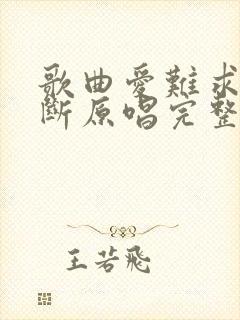 歌曲愛難求情難
斷原唱完整
王若飛